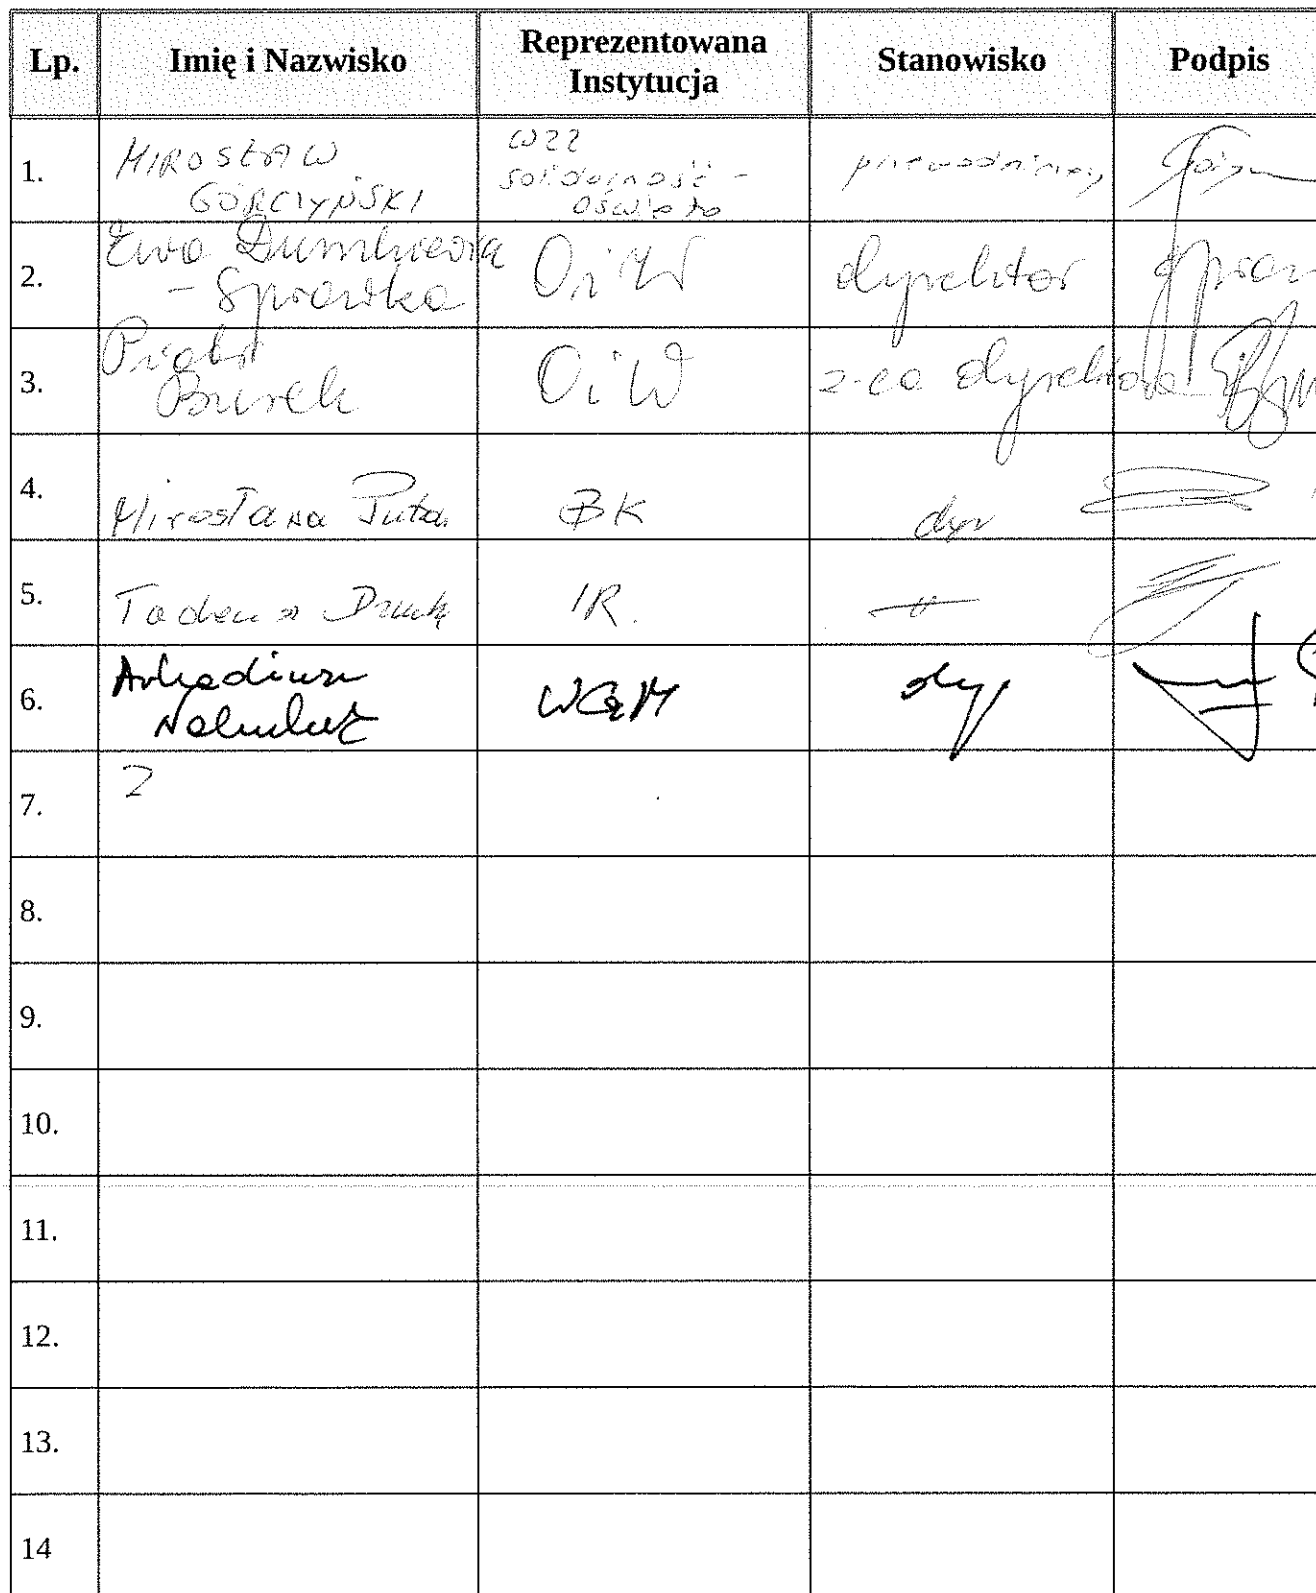 Lp. Imię i Nazwisko Reprezentowana Instytucja Stanowisko Podpis
1. MIROSŁAW GÓRCZYŃSKI WZZ Solidarność - Oświata przewodniczący
2. Ewa - Sprawka OiW dyrektor
3. Piotr Burek OiW z-ca dyrektora
4. Mirosława Puta BK dyr
5. Tadeusz IR.
6. Arkadiusz dyr
7.
8.
9.
10.
11.
12.
13.
14